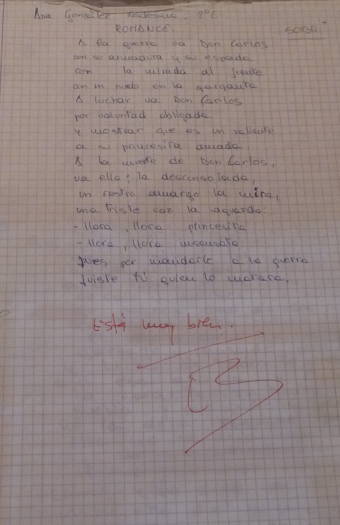 Ana González 2ºE
ROMANCE.
A la guerra va Don Carlos
con su armadura y su espada
con la mirada al frente
un nudo en la garganta
A luchar va Don Carlos
por voluntad obligada
y mostrar que es un valiente
a su princesita amada.
A la muerte de Don Carlos,
va ella; la desconsolada,
un rostro amargo la mira,
una triste voz la aguarda:
- llora, llora princesita
- llora, llora insensata
pues por mandarle a la guerra
fuiste tú quien lo matara.
Está muy bien.